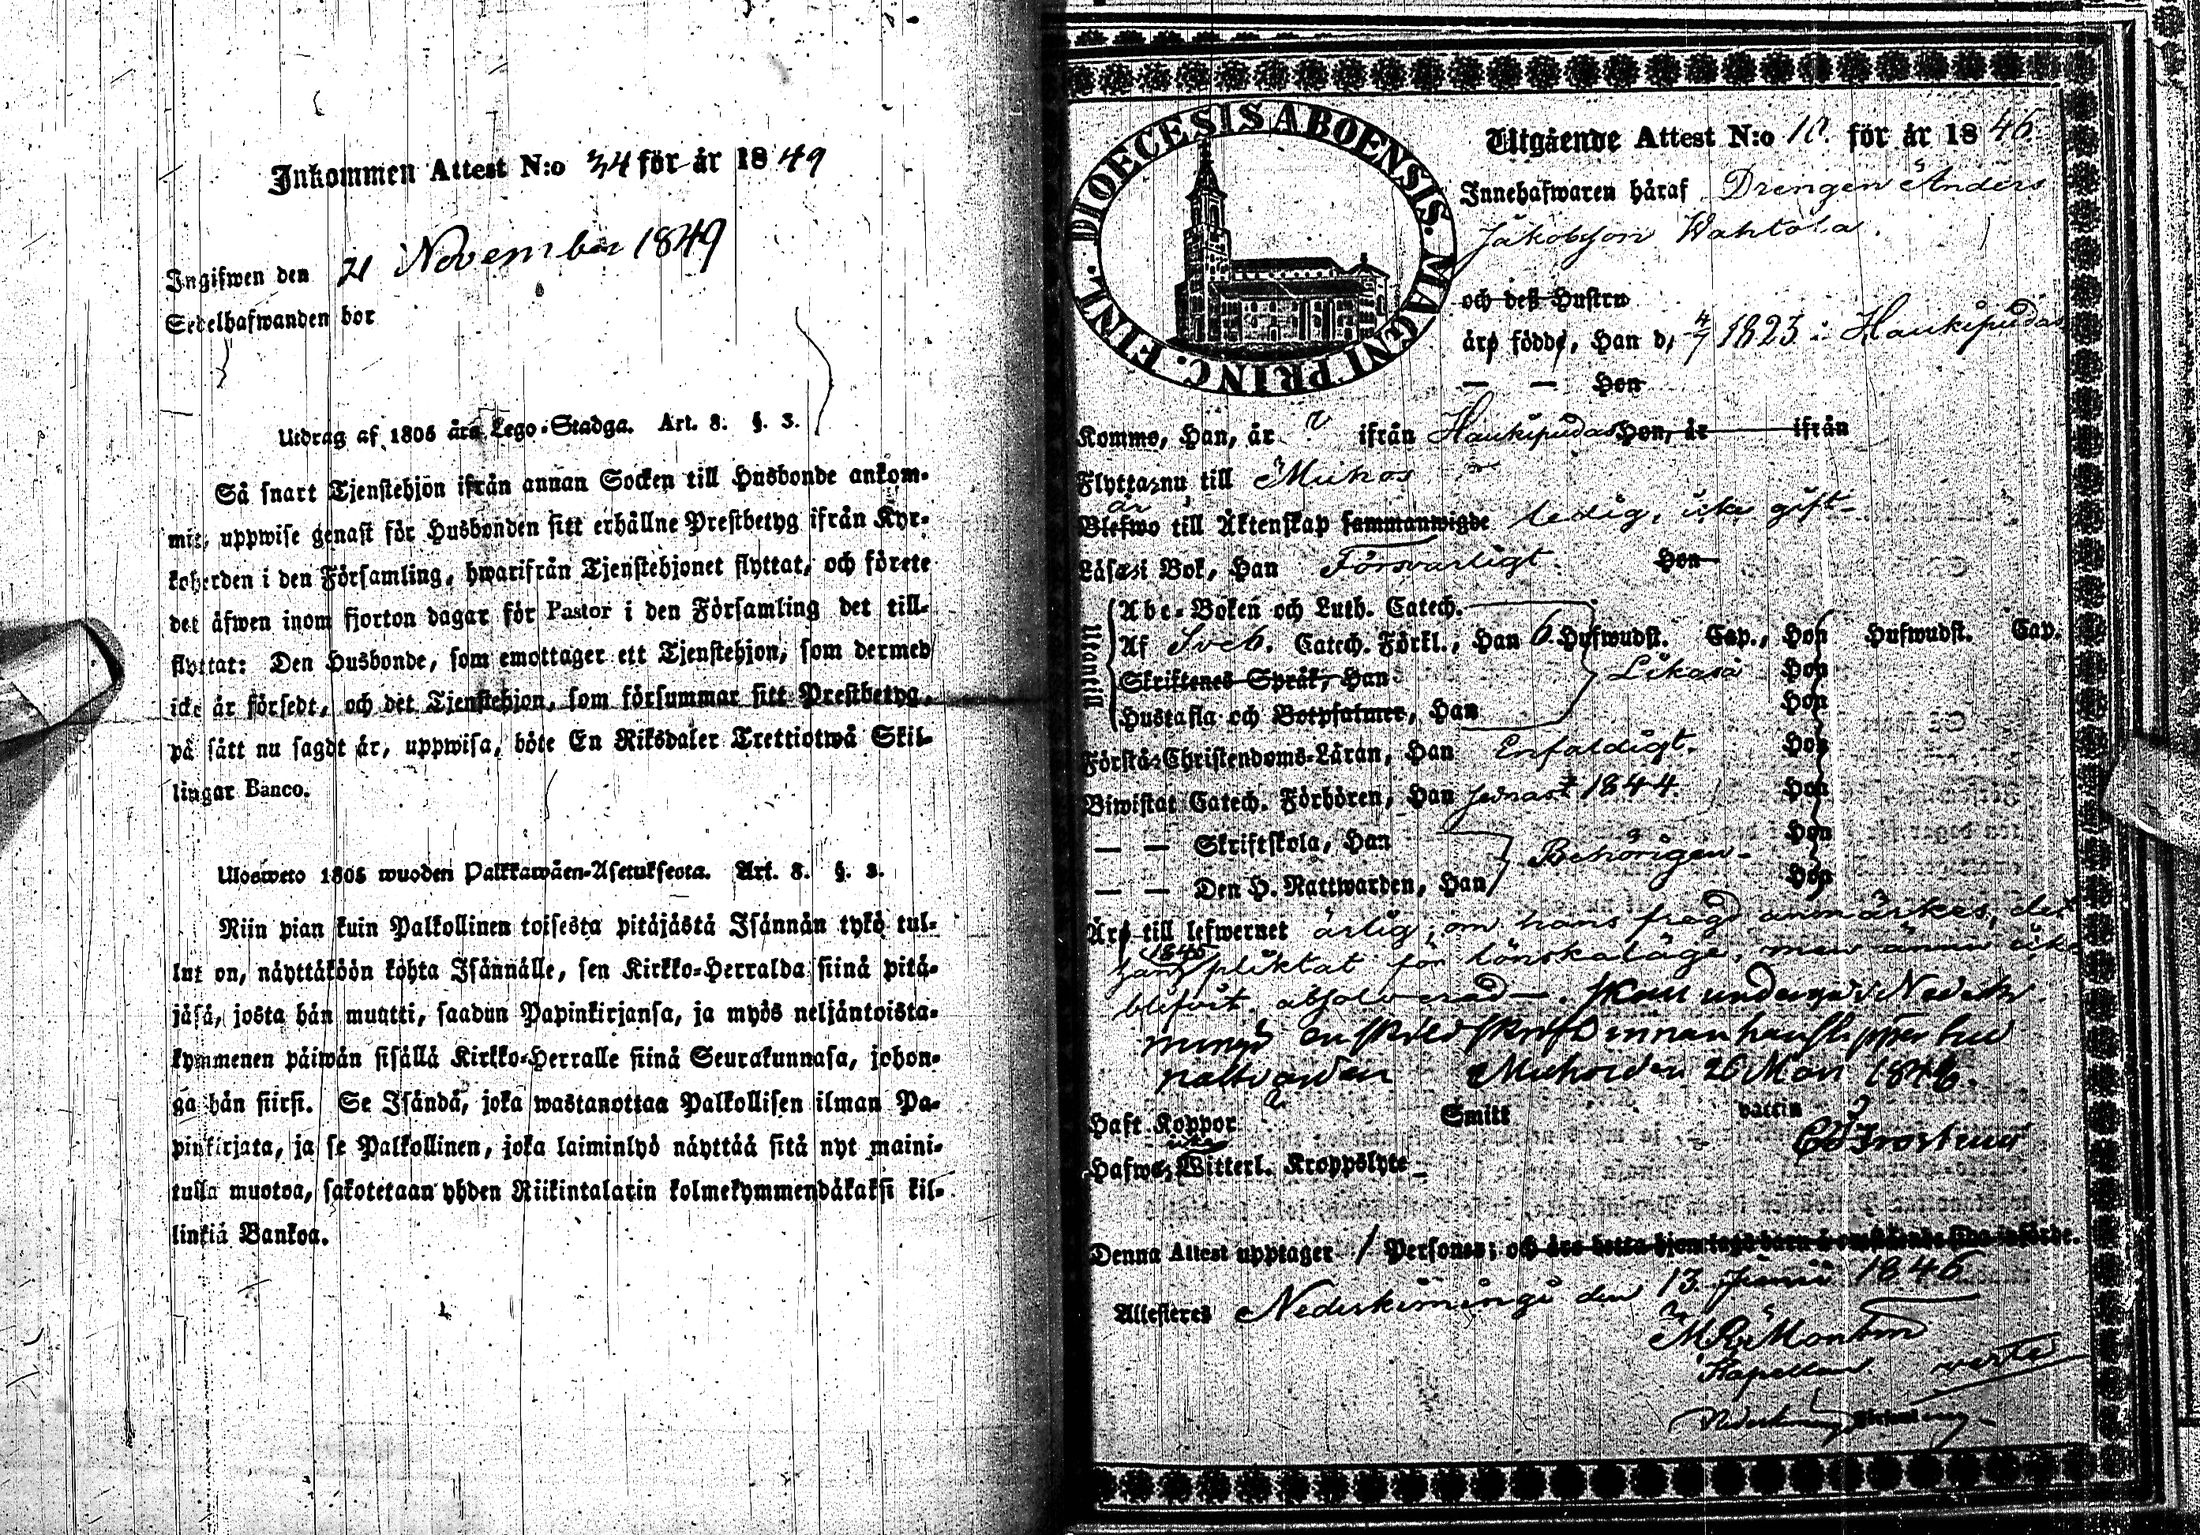 Inkommen Attest N:o 34 för år 1849
Ingifwen den 21 November 1849
Sedelhafwanden bor
Utdrag af 1805 års Lego-Stadga. Art. 8. §. 3.
Så snart Tjenstehjon ifrån annan Socken till Husbonde ankom-
mit, uppwise genast för Husbonden sitt erhållne Prestbetyg ifrån Kyr-
koherden i den Församling, hwarifrån Tjenstehjonet flyttat, och förete
det äfwen inom fjorton dagar för Pastor i den Församling det till-
flyttat: Den Husbonde, som emottager ett Tjenstehjon, som dermed
icke är försedt, och det Tjenstehjon, som försummar sitt Prestbetyg,
på sätt nu sagdt är, uppwisa, böte En Riksdaler Trettiotwå Skil-
lingar Banco.
Ulosweto 1805 wuoden Palkkawäen-Asetuksesta. Art. 8. §. 3.
Niin pian kuin Palkollinen toisesta pitäjästä Isännän tykö tul-
lut on, näyttäköön kohta Isännälle, sen Kirkko-Herralda siinä pitä-
jäsä, josta hän muutti, saadun Papinkirjansa, ja myös neljäntoista-
kymmenen päiwän sisällä Kirkko-Herralle siinä Seurakunnasa, johon-
ga hän siirsi. Se Isändä, joka wastanottaa Palkollisen ilman Pa-
pinkirjata, ja se Palkollinen, joka laiminlyö näyttää sitä nyt maini-
tulla muotoa, sakotetaan yhden Riikintalarin kolmekymmendäkaksi kil-
linkiä Bankoa.
DIOECESIS ABOENSIS. MAGNI PRINC. FINL.
Utgående Attest N:o 10. för år 1846
Innehafwaren häraf Drengen Anders
Jakobsson Wahtola.
och dess Hustru
äro födde, Han d. 4/7 1823 i Haukipudas
— — Hon
Kommo, Han, år ? ifrån Haukipudas Hon, år ifrån
Flytta nu till Muhos
är
Blefwo till Äktenskap sammanwigde ledig, icke gift
Läsa i Bok, Han Försvarligt Hon
Utantill
Abc-Boken och Luth. Catech.
Af Sveb. Catech. Förkl., Han 6. Hufwudst. Cap., Hon Hufwudst. Cap.
Skriftenes Språk, Han Likaså Hon
Hustafla och Botpsalmer, Han Hon
Förstå Christendoms-Läran, Han Enfaldigt. Hon
Biwistat Catech. Förhören, Han senast 1844 Hon
— — Skriftskola, Han Behörigen Hon
— — Den H. Nattwarden, Han Hon
Äro till lefwernet ärlig, om hans frägd anmärkes, det
1845
han pliktat för lönskaläge, men ännu icke
blifvit absolverad. Skall undergå i Neder
innan han
nattvarden Muhos den 26 Mars 1846.
Haft Koppor Smitt vaccin
icke
Hafwa Witterl. Kroppslyte
Denna Attest upptager 1 Personer; och
Attesteres Nederkiminge den 13. Junii 1846
Kapellan verte